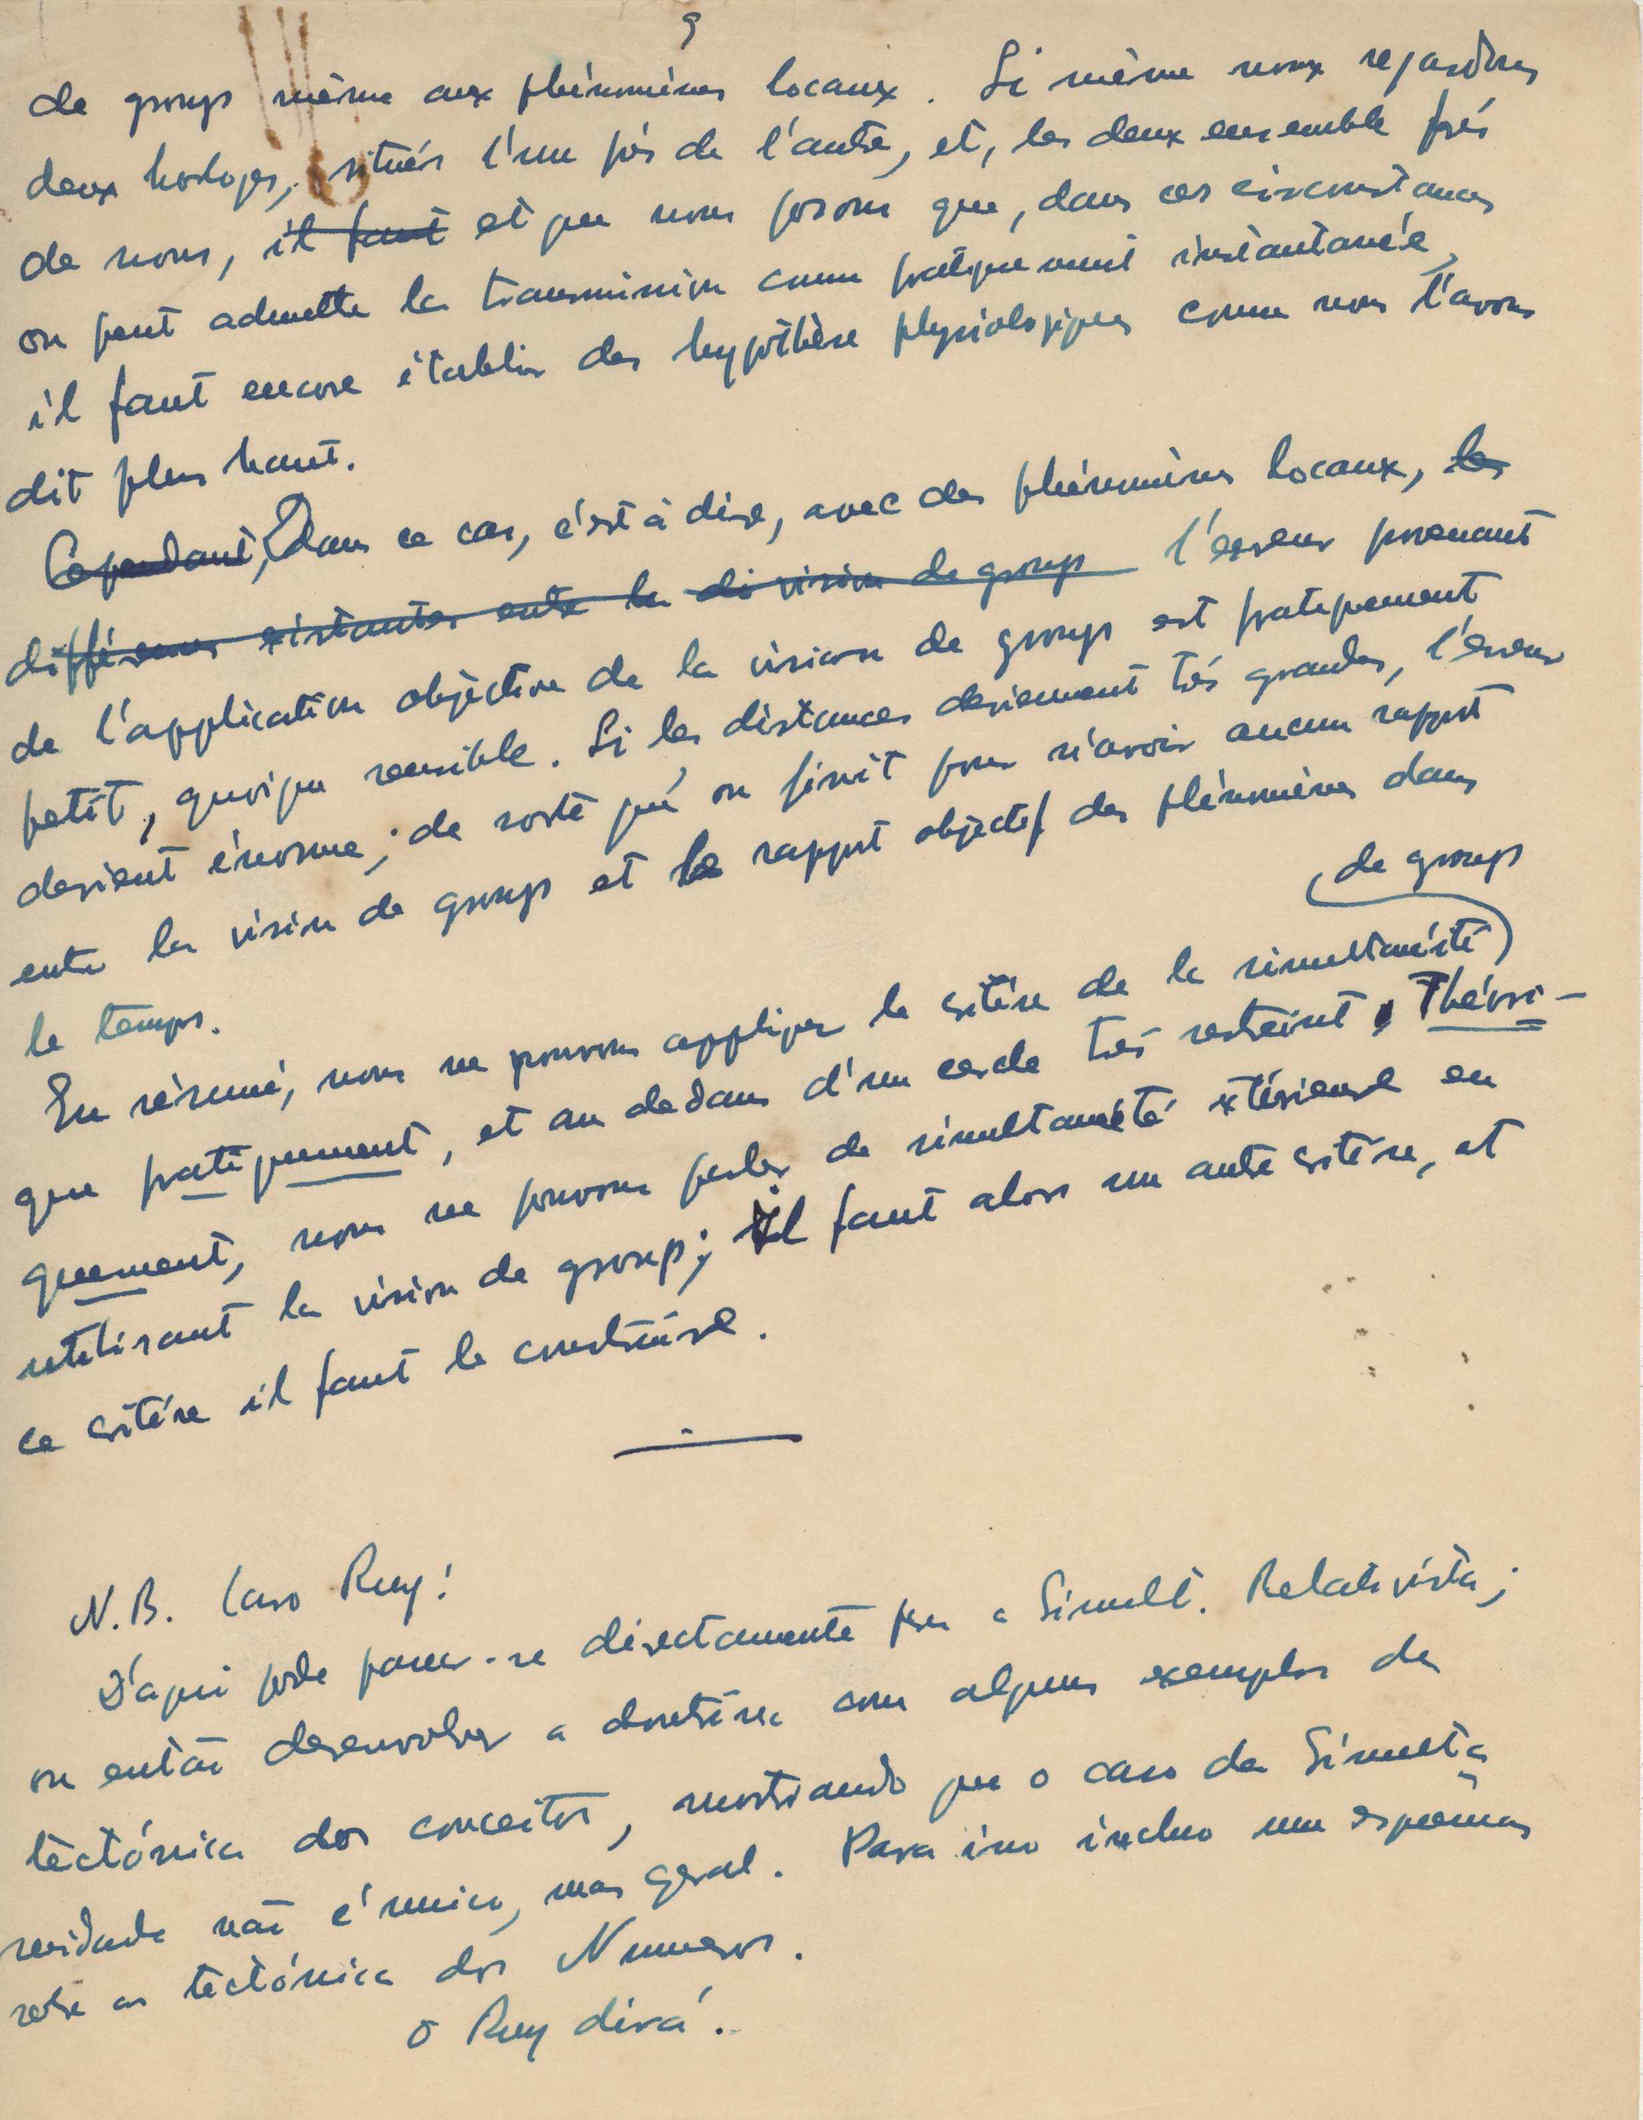 9
de group même aux phénomènes locaux. Si même nous regardons
deux horloges, situés l'un près de l'autre, et, les deux ensemble près
de nous, il faut et que nous posons que, dans ces circonstances
on peut admettre la transmission comme pratiquement instantanée,
il faut encore établir des hypothèse physiologiques comme nous l'avons
dit plus haut.
Cependant, Dans ce cas, c'est à dire, avec des phénomènes locaux, les
différences existantes entre la division de group l'erreur provenant
de l'application objective de la vision de group est pratiquement
petit, quoique sensible. Si les distances deviennent très grandes, l'erreur
devient énorme; de sorte qu'on finit pour n'avoir aucun rapport
entre la vision de group et le rapport objectif des phénomènes dans
de group
le temps.
En résumé, nous ne pouvons appliquer le critère de la simultanéité
que pratiquement, et au dedans d'un cercle très restreint. Théori-
quement, nous ne pouvons parler de simultanéité extérieure en
utilisant la vision de group; il faut alors un autre critère, et
ce critère il faut le construire.
N.B. Caro Ruy!
D'aqui pode passar-se directamente para a Simult. Relativista;
ou então desenvolver a doutrina com alguns exemplos da
tectónica dos conceitos, mostrando que o caso da Simulta
neidade não é unico, mas geral. Para isso incluo um esquema
sobre a tectónica dos Numeros.
O Ruy dirá.